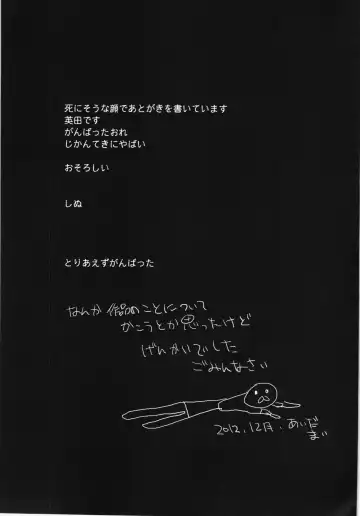 死にそうな顔であとがきを書いています
英田です
がんばったおれ
じかんてきにやばい
おそろしい
しぬ
とりあえずがんばった
なんか作品のことについて
かこうとか思ったけど
げんかいでした
ごみんなさい
2012.12月.あいだ
まい